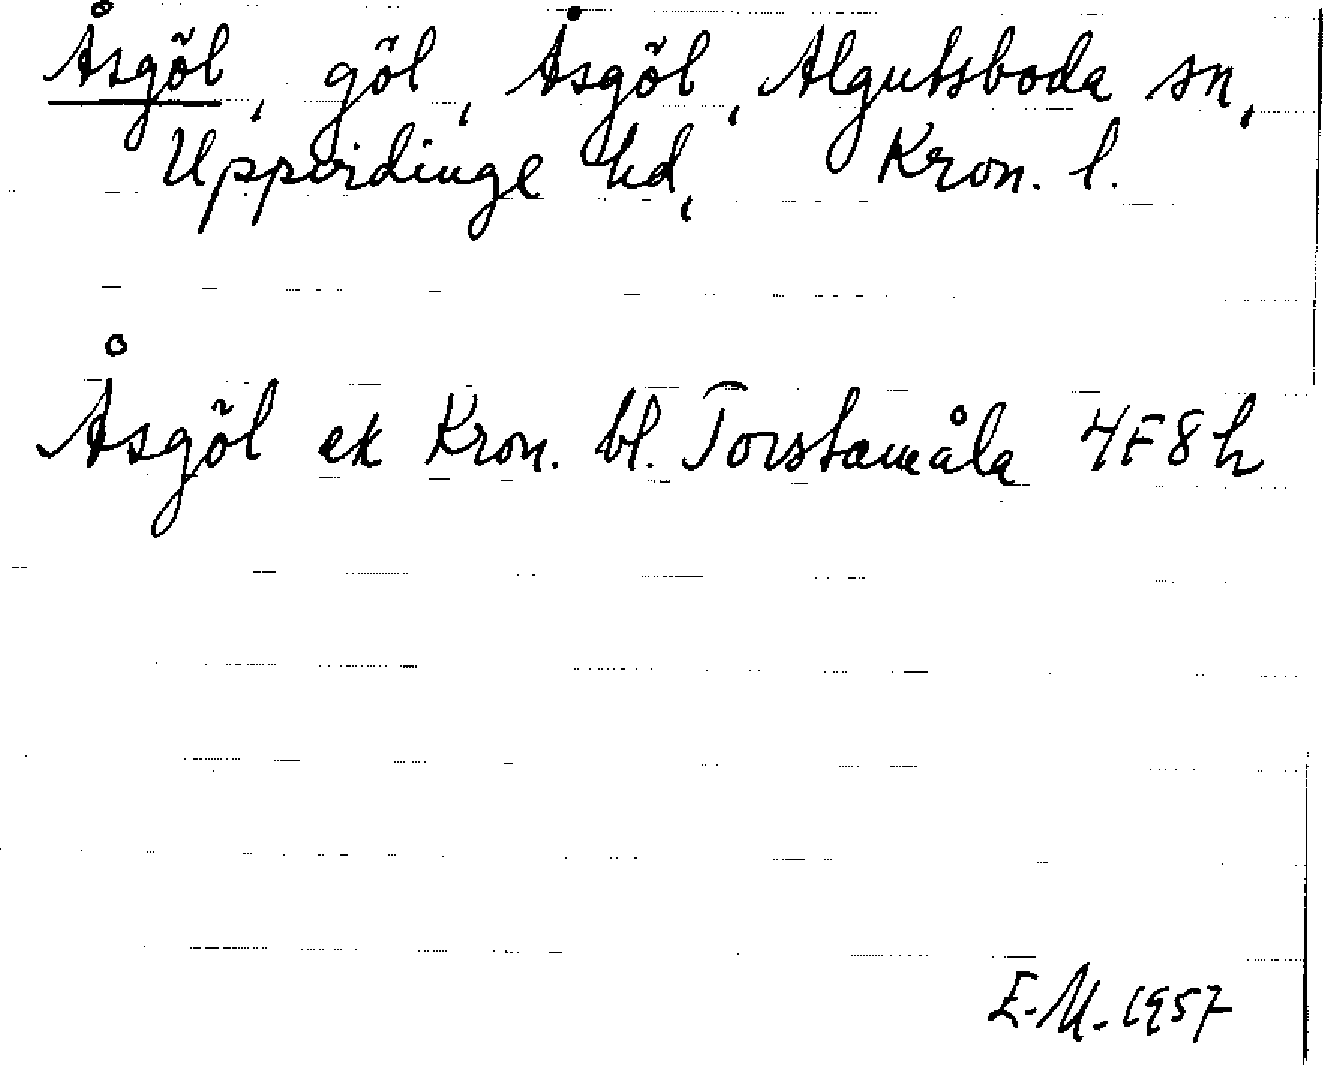 Åsgöl, göl, Åsgöl, Algutsboda sn,
Uppvidinge hd, Kron. l.
Åsgöl ek Kron. bl. Torstamåla 4F8h
E.M. 1957